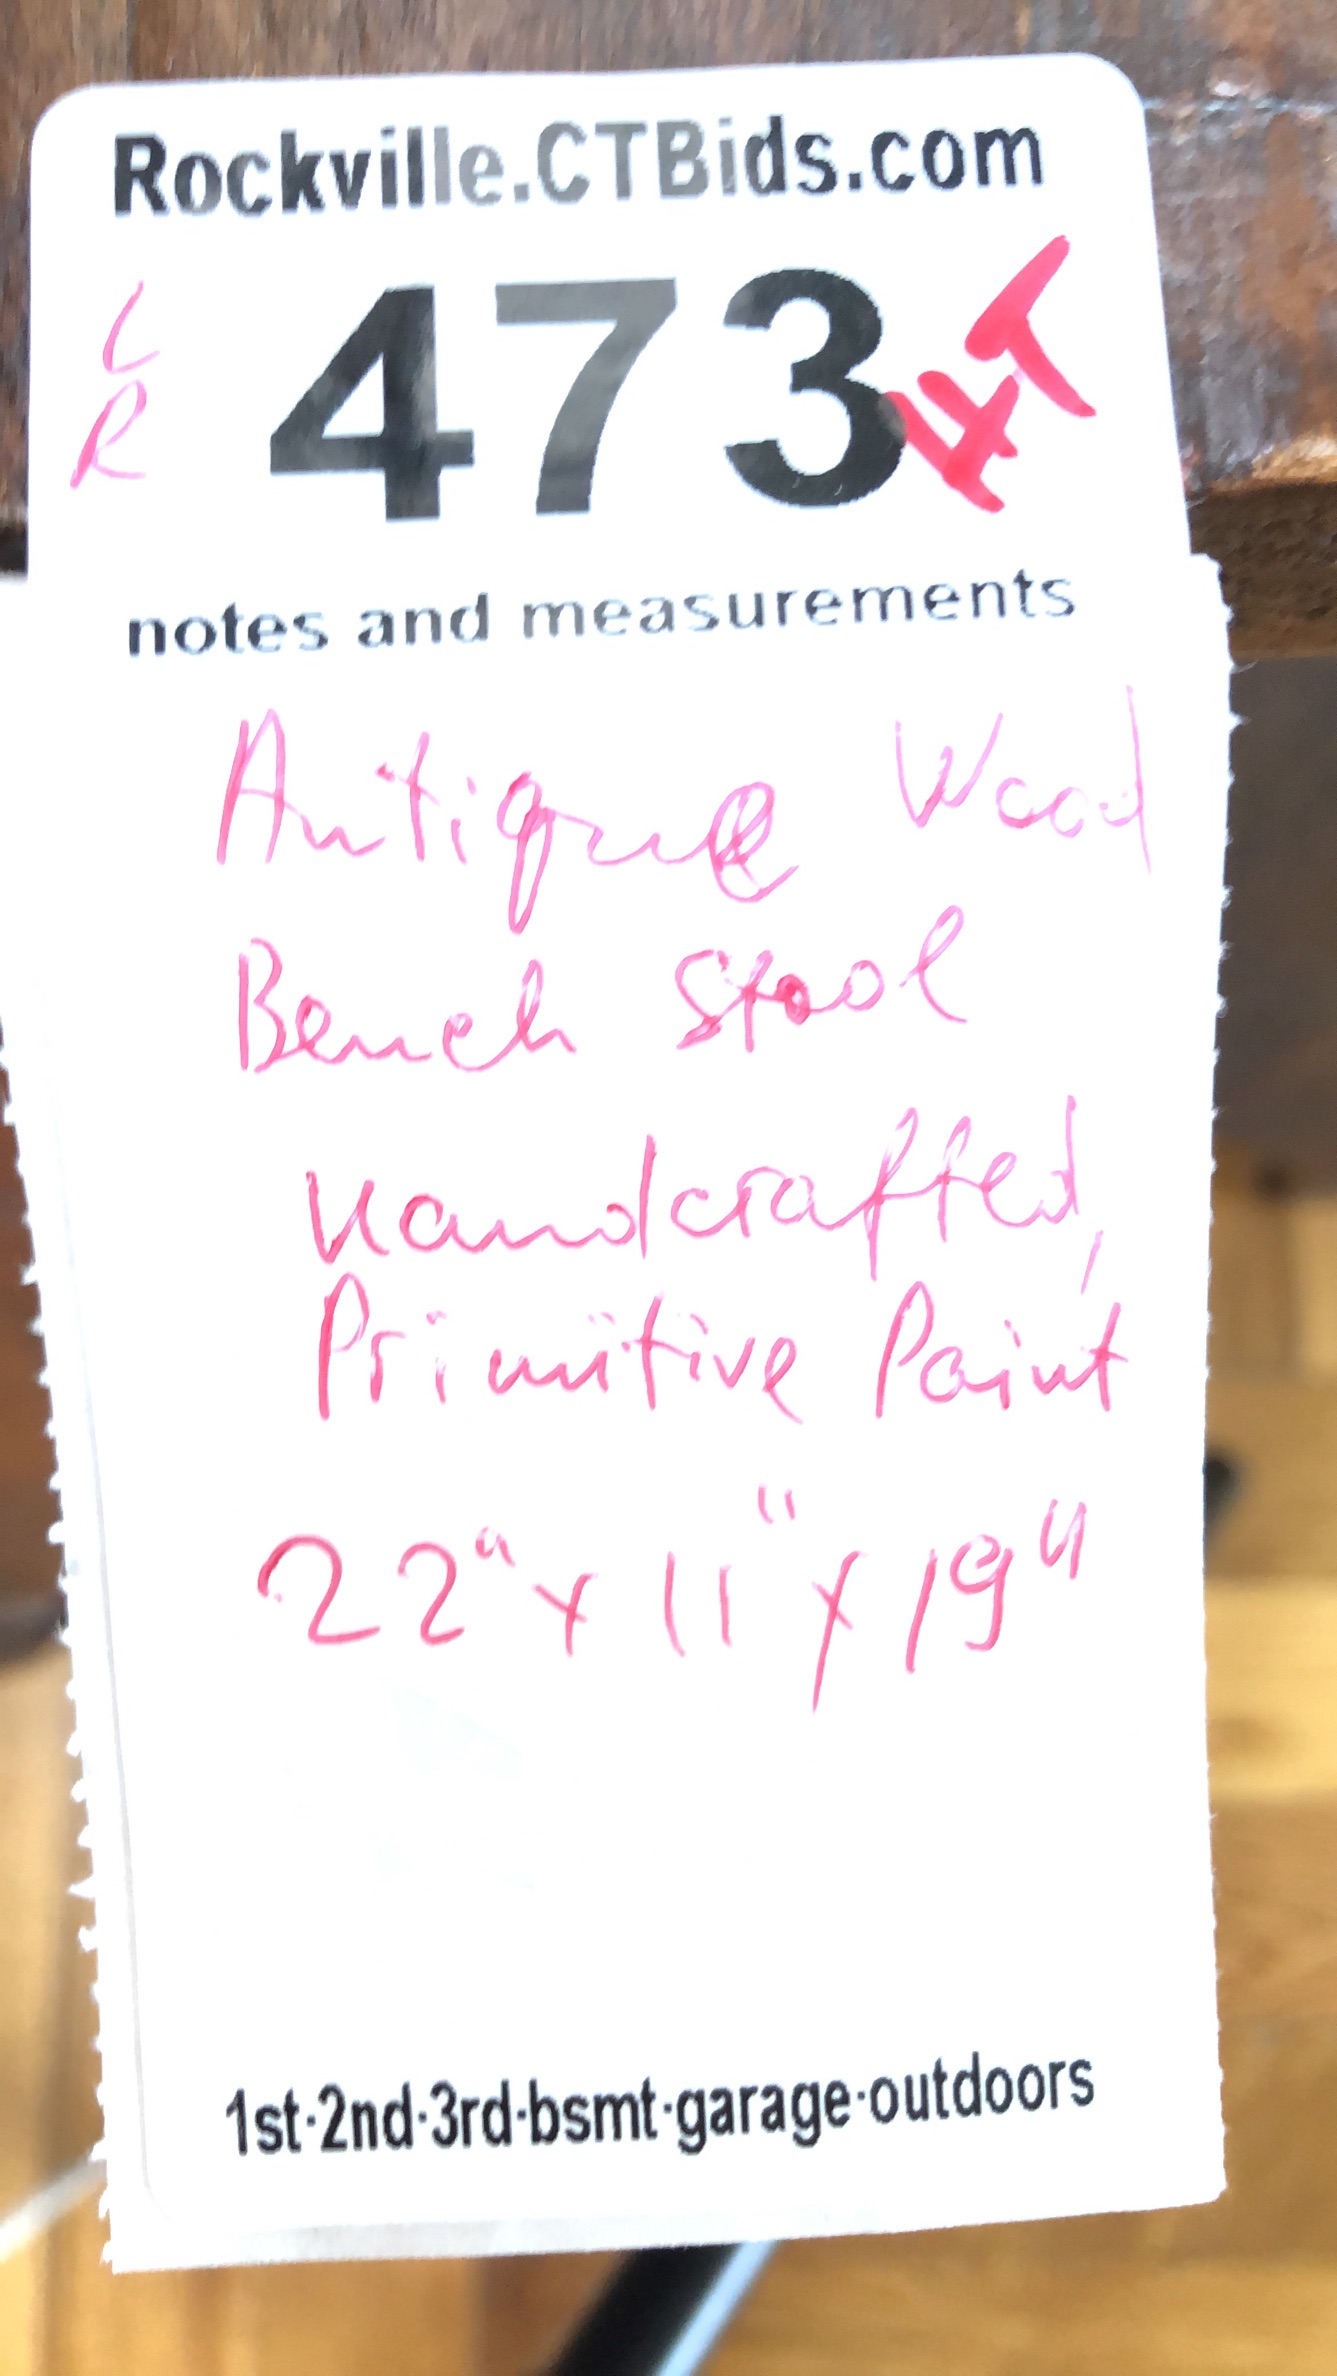 Rockville.CTBids.com
L
R
473
HT
notes and measurements
Antique Wood
Bench Stool
Handcrafted,
Primitive Paint
22" x 11" x 19"
1st·2nd·3rd·bsmt·garage·outdoors